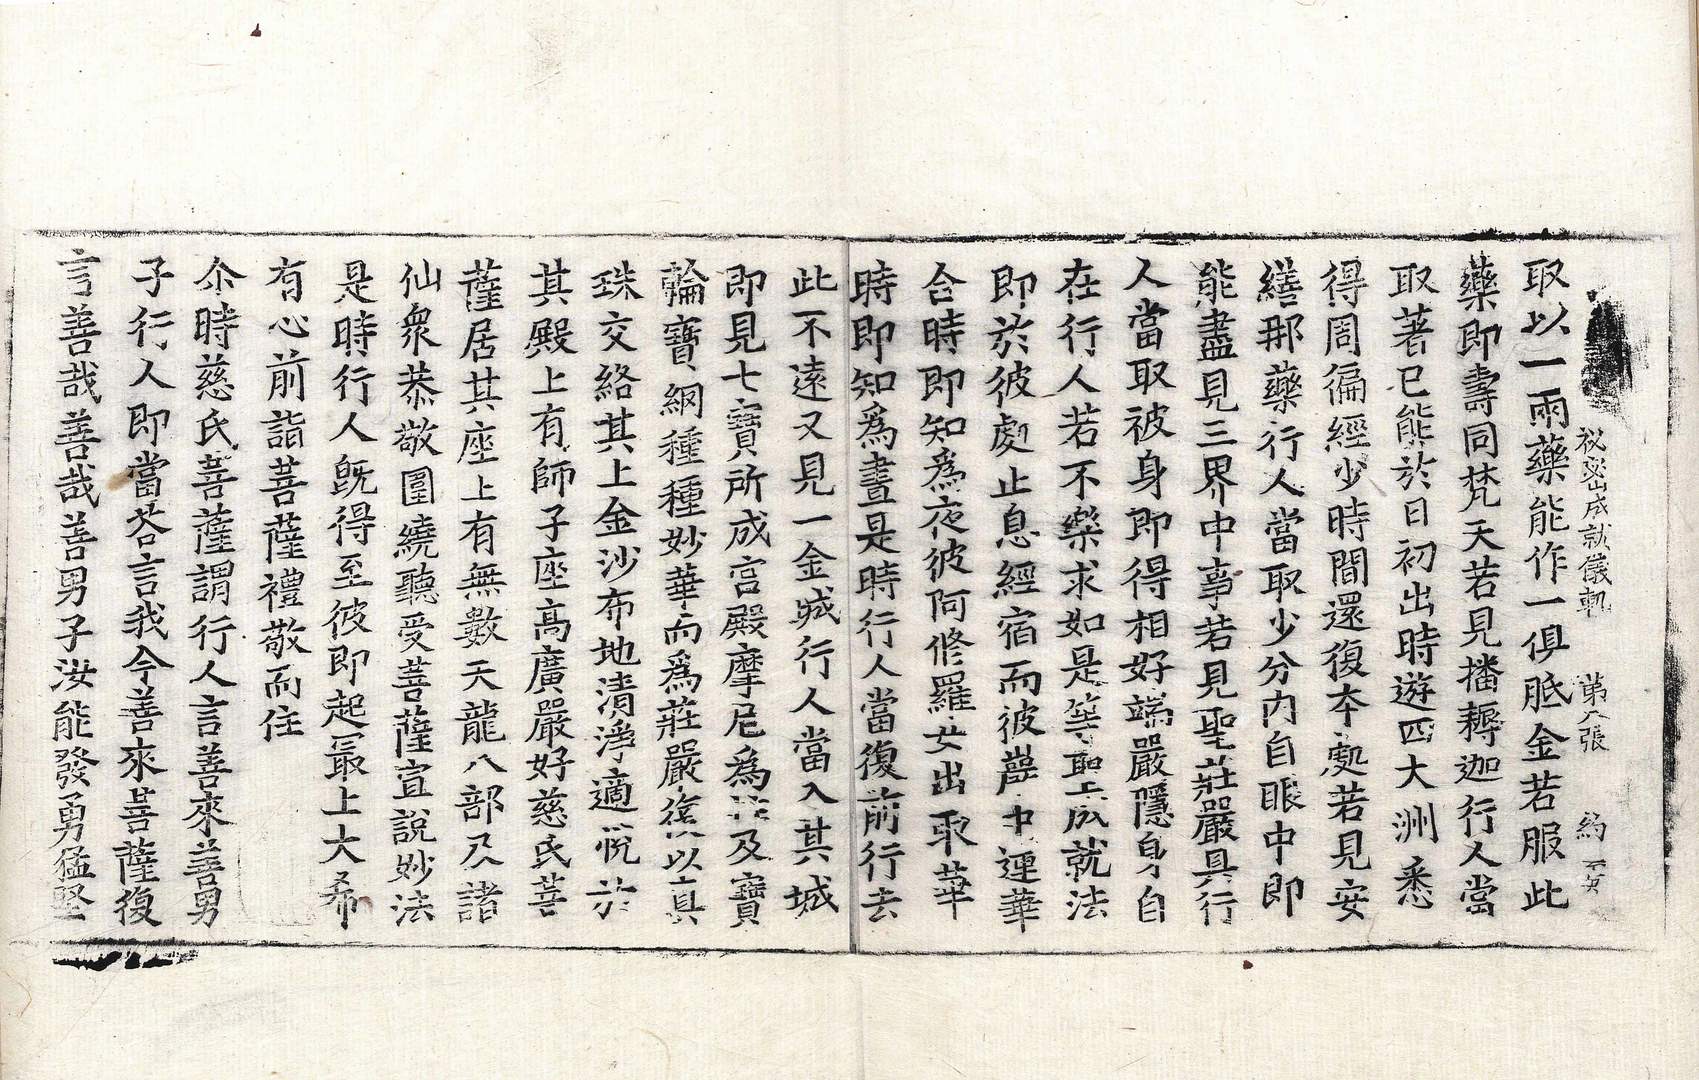 秘密成就儀軌　第八張　約
取以一兩藥能作一俱胝金若服此
藥即壽同梵天若見播耨迦行人當
取著已能於日初出時遊四大洲悉
得周徧經少時間還復本處若見安
繕那藥行人當取少分內自眼中即
能盡見三界中事若見聖莊嚴具行
人當取被身即得相好端嚴隱身自
在行人若不樂求如是等聖成就法
即於彼處止息經宿而彼夢中蓮華
合時即知為夜彼阿修羅女出取華
時即知為晝是時行人當復前行去
此不遠又見一金城行人當入其城
即見七寶所成宮殿摩尼為及寶
輪寶網種種妙華而為莊嚴復以真
珠交絡其上金沙布地清淨適悅於
其殿上有師子座高廣嚴好慈氏菩
薩居其座上有無數天龍八部及諸
仙衆恭敬圍繞聽受菩薩宣說妙法
是時行人旣得至彼即起最上大希
有心前詣菩薩禮敬而住
尒時慈氏菩薩謂行人言善來善男
子行人即當荅言我今善來菩薩復
言善哉善哉善男子汝能發勇猛堅